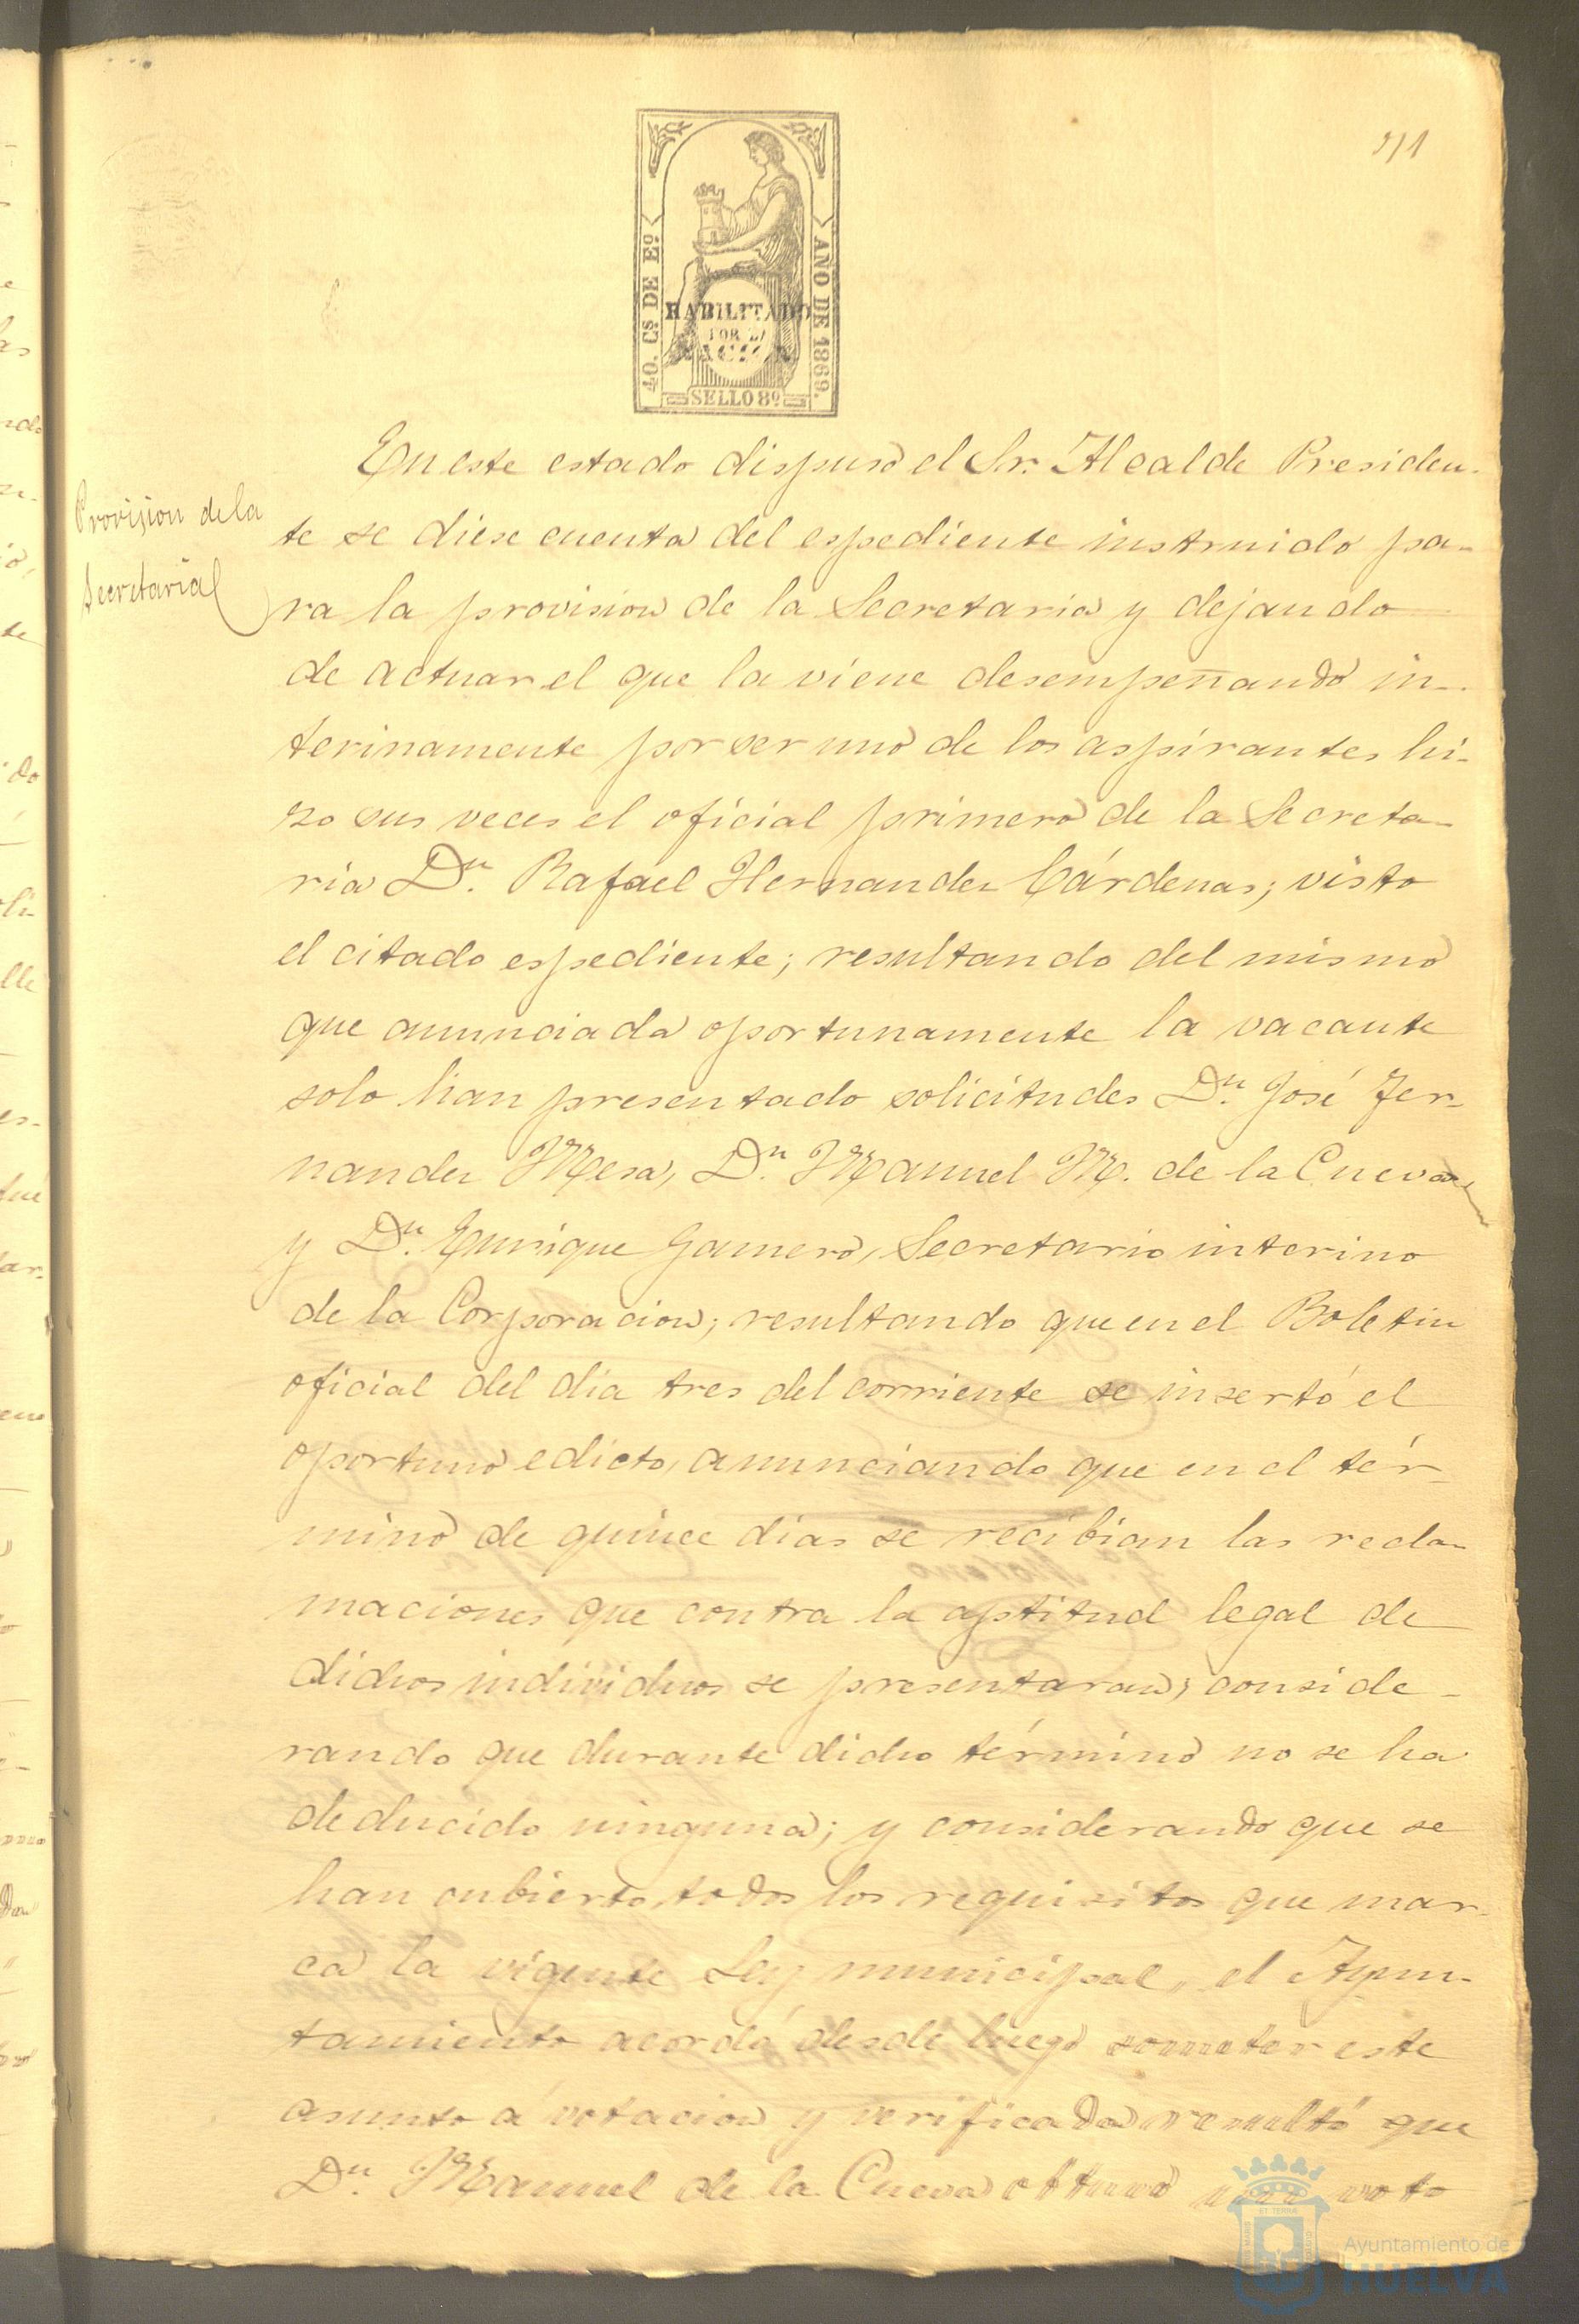 40. Cs. DE Eo.
AÑO DE 1869.
HABILITADO
POR LA
NACION
SELLO 8º
Provision de la
Secretaria
En este estado dispuso el Sr. Alcalde Presiden-
te se diese cuenta del espediente instruido pa-
ra la provision de la Secretaria y dejando
de actuar el que la viene desempeñando in-
terinamente por ser uno de los aspirantes hi-
zo sus veces el oficial primero de la Secreta-
ria Dn. Rafael Hernandez Cárdenas; visto
el citado espediente; resultando del mismo
que anunciada oportunamente la vacante
solo han presentado solicitudes Dn. José Fer-
nandez Mesa, Dn. Manuel M. de la Cueva
y Dn. Enrique Gamero, Secretario interino
de la Corporacion; resultando que en el Boletin
oficial del dia tres del corriente se insertó el
oportuno edicto, anunciando que en el tér-
mino de quince dias se recibian las recla-
maciones que contra la aptitud legal de
dichos individuos se presentaran; conside-
rando que durante dicho término no se ha
deducido ninguna; y considerando que se
han cubierto todos los requisitos que mar-
ca la vigente Ley municipal, el Ayun-
tamiento acordó desde luego someter este
asunto á votacion y verificada resultó que
Dn. Manuel de la Cueva obtuvo un voto
Ayuntamiento de
HUELVA